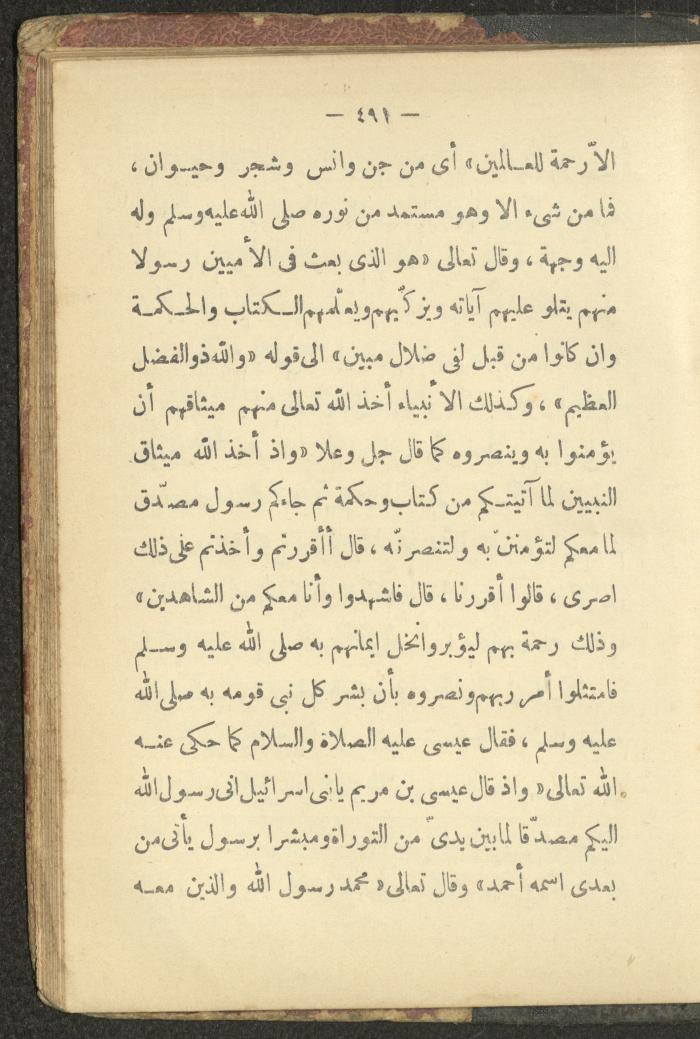 — ٤٩١ —
الاّ رحمة للعـالمين» أى من جن وانس وشجر وحيـوان ،
فما من شىء الا وهو مستمد من نوره صلى الله عليه وسلم وله
اليه وجهة ، وقال تعالى «هو الذى بعث فى الأميين رسولا
منهم يتلو عليهم آياته ويزكّيهم ويعلّمهم الـكتاب والحـكمـة
وان كانوا من قبل لفى ضلال مبين» الى قوله «والله ذو الفضل
العظيم» ، وكـذلك الأنبياء أخذ الله تعالى منهم ميثاقهم أن
يؤمنوا به وينصروه كما قال جل وعلا «واذ أخذ الله ميثاق
النبيين لما آتيتـكم من كتاب وحكمة ثم جاءكم رسول مصدّق
لما معكم لتؤمننّ به ولتنصرنّه ، قال أأقررتم وأخذتم على ذلك
اصرى ، قالوا أقررنا ، قال فاشهدوا وأنا معكم من الشاهدين»
وذلك رحمة بهم ليؤبروا نخل ايمانهم به صلى الله عليه وسـلم
فامتثلوا أمر ربهم ونصروه بأن بشر كل نبى قومه به صلى الله
عليه وسلم ، فقال عيسى عليه الصلاة والسلام كما حكى عنـه
الله تعالى« واذ قال عيسى بن مريم يابنى اسرائيل انى رسول الله
اليكم مصدّقا لما بين يدىّ من التوراة ومبشرا برسول يأتى من
بعدى اسمه أحمد» وقال تعالى« محمد رسول الله والذين معـه